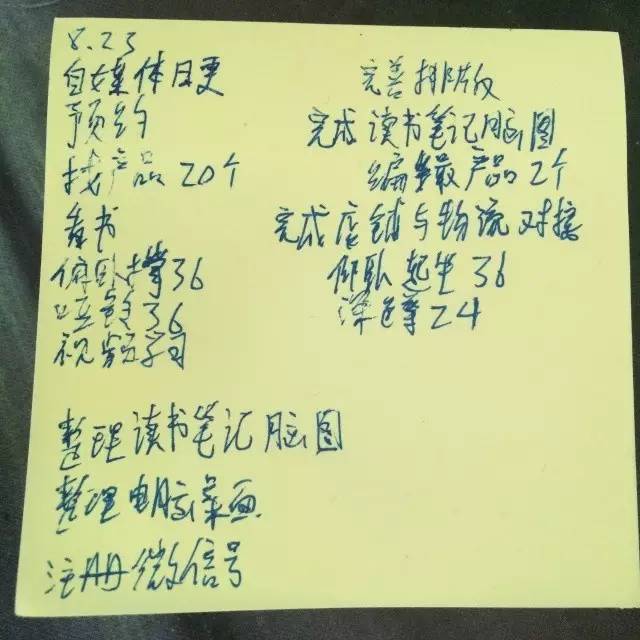 8.23
自媒体日更
完善排版
预约
完成读书笔记脑图
找产品20个
编辑产品2个
看书
完成店铺与物流对接
俯卧撑36
仰卧起坐36
哑铃36
24
视频学习
整理读书笔记脑图
整理电脑桌面
注册微信号